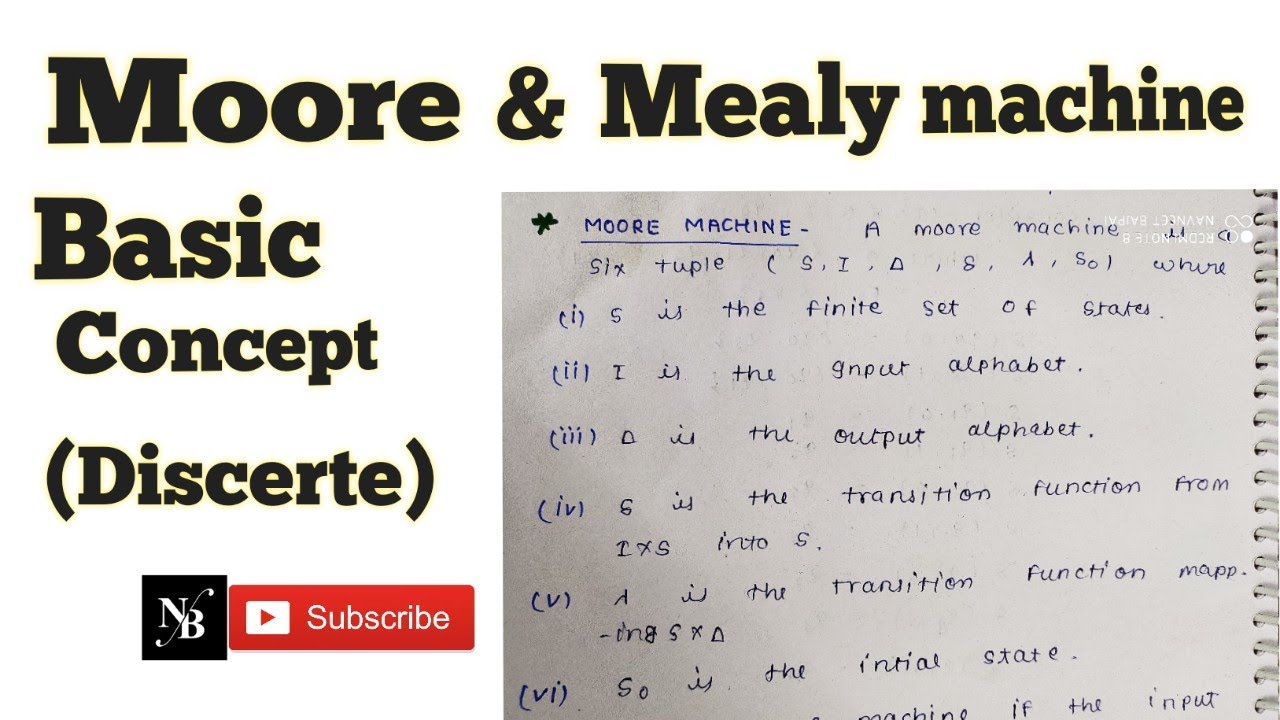 Moore & Mealy machine
Basic
Concept
(Discerte)
NB
Subscribe
* MOORE MACHINE - A moore machine is a
six tuple ( S, I, Δ, δ, λ, S0) where
(i) S is the finite set of states.
(ii) I is the gnput alphabet.
(iii) Δ is the output alphabet.
(iv) δ is the transition function from
I×S into S.
(v) λ is the transition function mapp-
-ing S × Δ
(vi) S0 is the intial state.
machine if the input
REDMI NOTE 8
NAVNEET BAJPAI